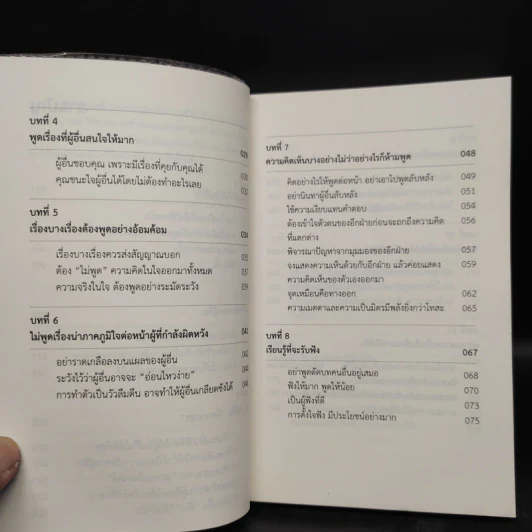 บทที่ 4
พูดเรื่องที่ผู้อื่นสนใจให้มาก 029
ผู้อื่นชอบคุณ เพราะมีเรื่องที่คุยกับคุณได้ 030
คุณชนะใจผู้อื่นได้โดยไม่ต้องทำอะไรเลย 032
บทที่ 5
เรื่องบางเรื่องต้องพูดอย่างอ้อมค้อม 034
เรื่องบางเรื่องควรส่งสัญญาณบอก 035
ต้อง “ไม่พูด” ความคิดในใจออกมาทั้งหมด 037
ความจริงในใจ ต้องพูดอย่างระมัดระวัง 039
บทที่ 6
ไม่พูดเรื่องน่าภาคภูมิใจต่อหน้าผู้ที่กำลังผิดหวัง
อย่าราดเกลือลงบนแผลของผู้อื่น
ระวังไว้ว่าผู้อื่นอาจจะ “อ่อนไหวง่าย”
การทำตัวเป็นวัวลืมตีน อาจทำให้ผู้อื่นเกลียดชังได้
บทที่ 7
ความคิดเห็นบางอย่างไม่ว่าอย่างไรก็ห้ามพูด 048
คิดอย่างไรให้พูดต่อหน้า อย่าเอาไปพูดลับหลัง 049
อย่านินทาผู้อื่นลับหลัง 051
ใช้ความเงียบแทนคำตอบ 054
ต้องเข้าใจตัวตนของอีกฝ่ายก่อนจะถกถึงความคิด 056
ที่แตกต่าง
พิจารณาปัญหาจากมุมมองของอีกฝ่าย 057
จงแสดงความเห็นด้วยกับอีกฝ่าย แล้วค่อยแสดง 059
ความคิดเห็นของตัวเองออกมา
จุดเหมือนคือทางออก 062
ความเมตตาและความเป็นมิตรมีพลังยิ่งกว่าโทสะ 065
บทที่ 8
เรียนรู้ที่จะรับฟัง 067
อย่าพูดตัดบทคนอื่นอยู่เสมอ 068
ฟังให้มาก พูดให้น้อย 070
เป็นผู้ฟังที่ดี 073
การตั้งใจฟัง มีประโยชน์อย่างมาก 075